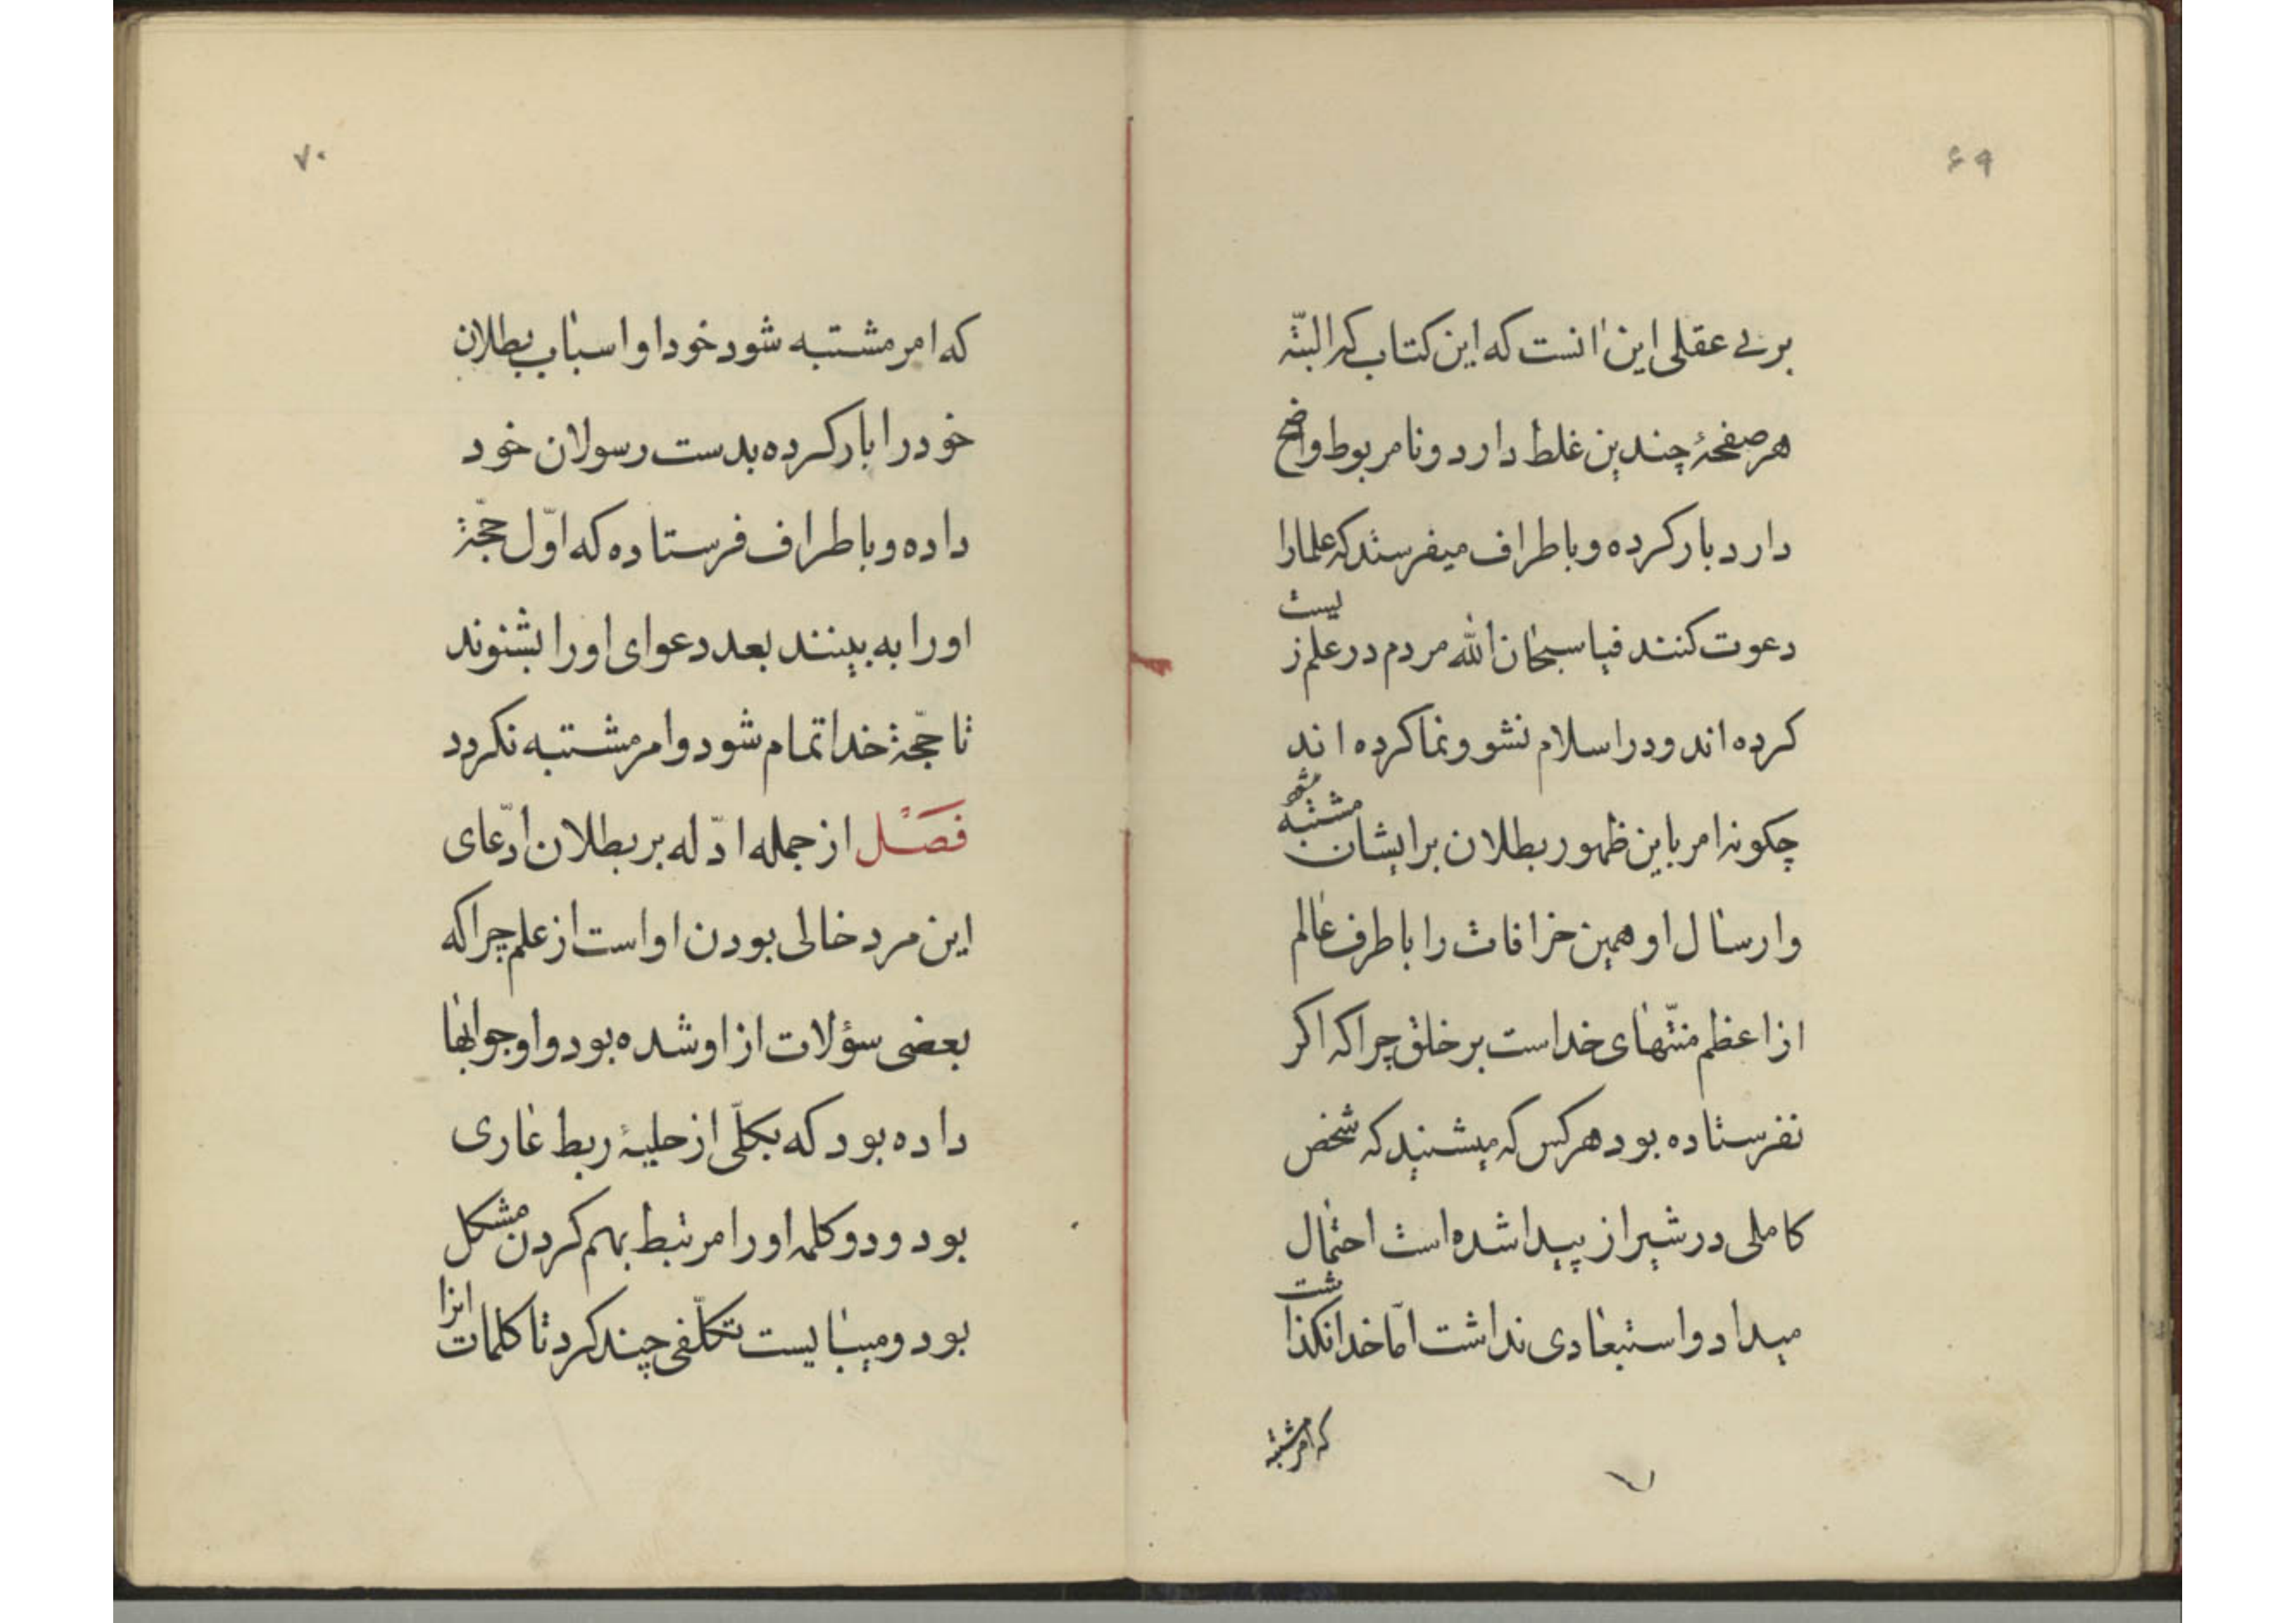 ۶۹
بر بی عقلی این انست که این کتاب که البته
هر صفحهٔ چندین غلط دارد و نامربوط واضح
دارد بار کرده و باطراف میفرستد که علما را
دعوت کنند فیا سبحان الله مردم در علم زیست
کرده اند و در اسلام نشو و نما کرده اند
چکونه امر باین ظهور بطلان برایشان مشتبه میشود
و ارسال او همین خرافات را باطراف عالم
از اعظم منّتهای خداست بر خلق چرا که اکر
نفرستاده بود هر کس که میشنید که شخص
کاملی در شیراز پیدا شده است احتمال
میداد و استبعادی نداشت امّا خدا نکذاشت
که امر مشتبه
۷۰
که امر مشتبه شود خود او اسباب بطلان
خود را بار کرده بدست رسولان خود
داده و باطراف فرستاده که اوّل حجّة
او را به بینند بعد دعوای او را بشنوند
تا حجّة خدا تمام شود و امر مشتبه نکردد
فَصْل از جمله ادّله بر بطلان ادّعای
این مرد خالی بودن او است از علم چرا که
بعضی سؤلات از او شده بود و او جوابها
داده بود که بکلّی از حلیهٔ ربط عاری
بود و دو کلمه او را مرتبط بهم کردن مشکل
بود و میبایست تکلّفی چند کرد تا کلمات انرا